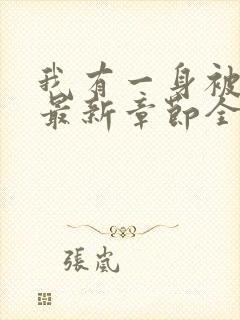 我有一身被
最新章节全
張嵐